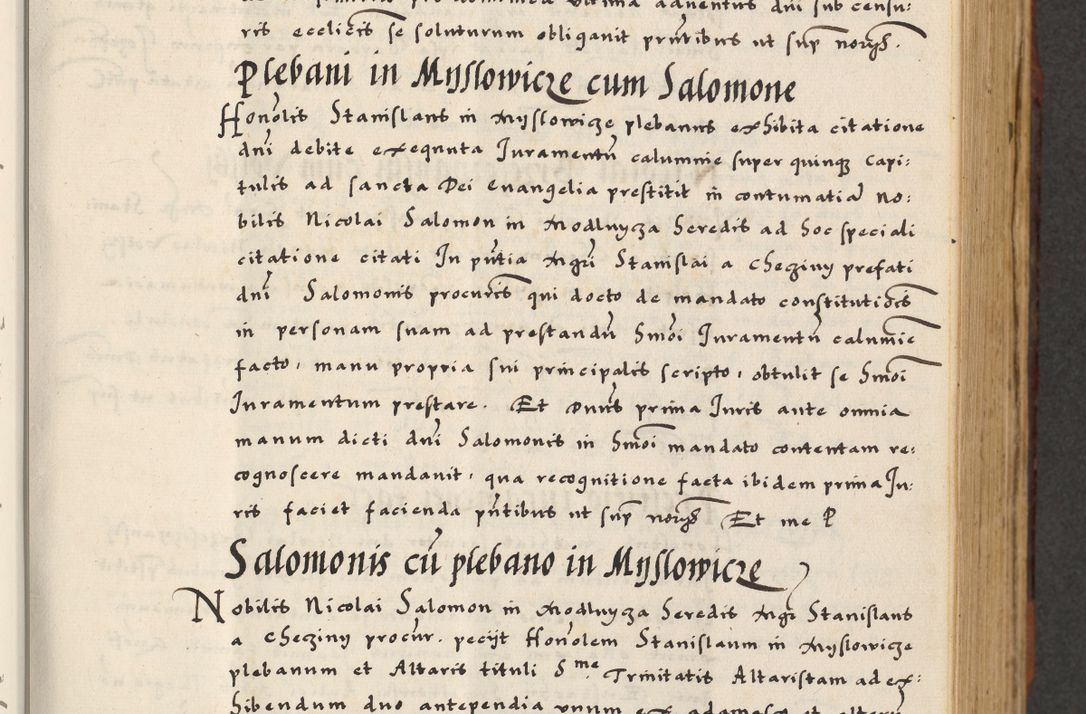 ris ecclictis se soluturum obligavit pntibus ut sup norgs.
Plebani in Myslowicze cum Salomone
Honolis Stanislaus in Myslowicze plebanus exhibita citatione
dni debite exequuta Juramentu calumnie super quinqz capi:
tulis ad sancta Dei evangelia prestitit in contumatia no:
bilis Nicolai Salomon in Modlnycza heredis ad hoc speciali
citatione citati In pntia Mgri Stanislai a Checziny prefati
dni Salomonis procuris qui docto de mandato constitutiois
in personam suam ad prestandu hmoi Juramentu calumie
facto, manu propria sui principalis scripto, obtulit se hmoi
Juramentum prestare. Et Dnus prima Juris ante omnia
manum dicti dni Salomonis in hmoi mandato contentam re:
cognoscere mandavit, qua recognitione facta ibidem prima Ju:
ris faciet facienda pntibus ut sup norgs Et me P
Salomonis cu plebano in Myslowicze
Nobilis Nicolai Salomon in Modlnycza heredis Mgr Stanislaus
a Checziny procur. pecijt Honolem Stanislaum in Myslowicze
plebanum et Altaris tituli S me. Trinitatis Altaristam ad ex:
hibendum duo antependia unum ex adamasco et alteru